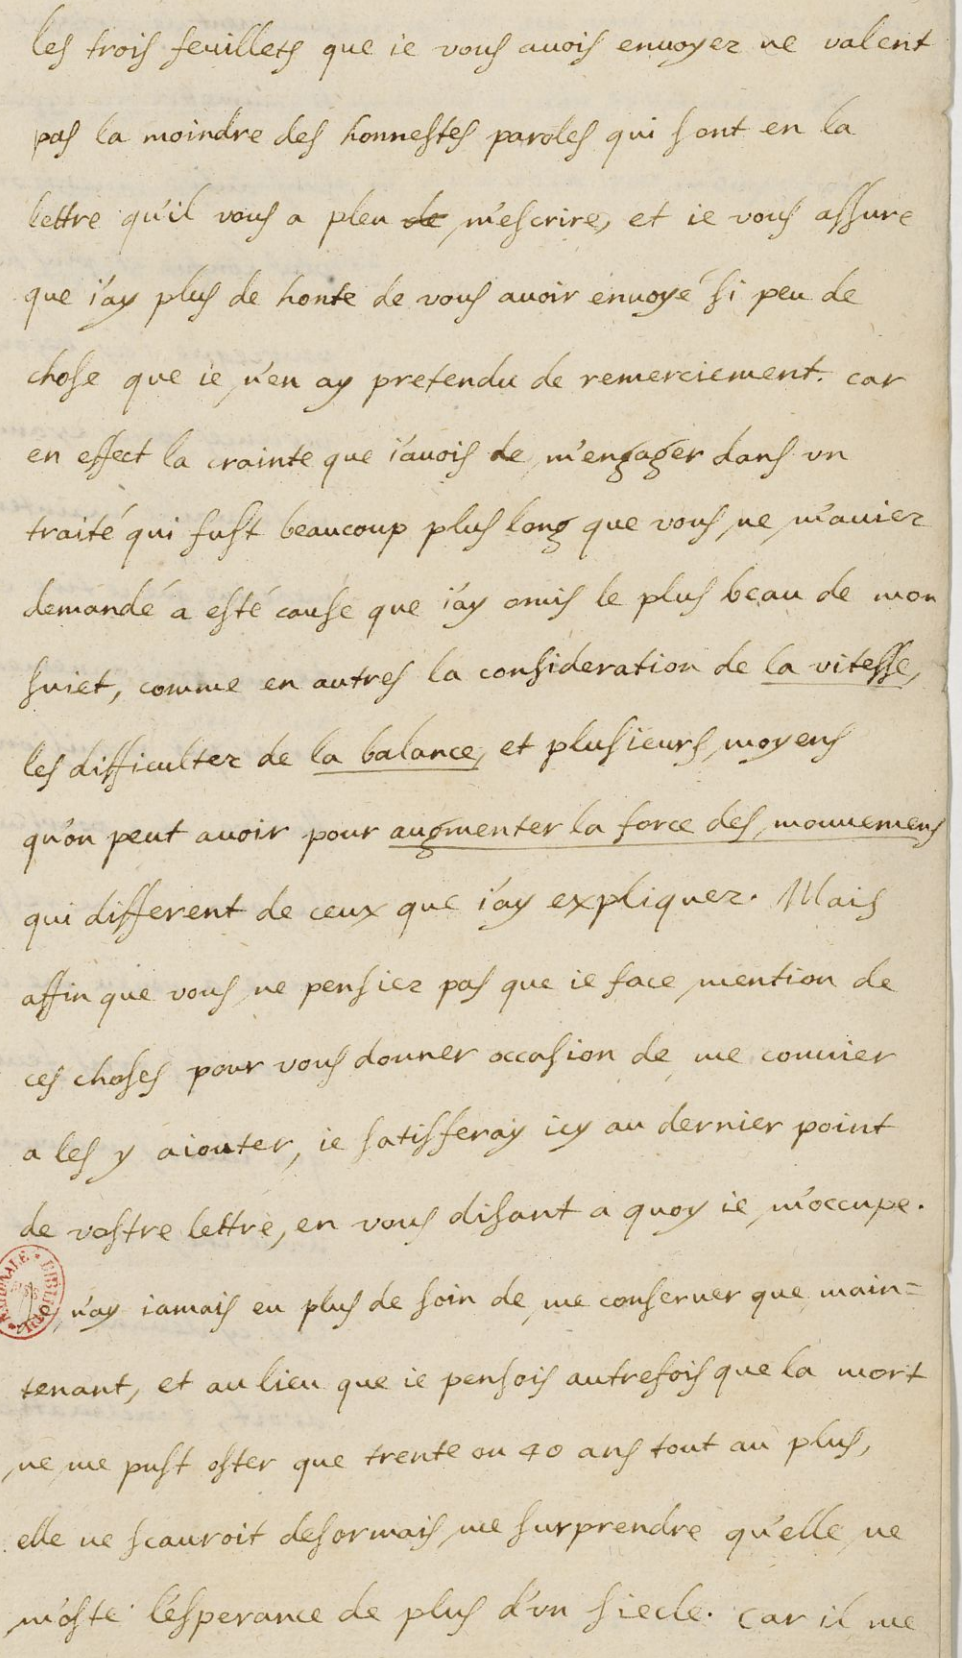 les trois feuillets que ie vous auois enuoyez ne valent
pas la moindre des honnestes paroles qui sont en la
lettre qu'il vous a pleu de m'escrire, et ie vous assure
que i'ay plus de honte de vous auoir enuoyé si peu de
chose que ie n'en ay pretendu de remerciement. car
en effect la crainte que i'auois de m'engager dans vn
traité qui fust beaucoup plus long que vous ne m'auiez
demandé a esté cause que i'ay omis le plus beau de mon
suiet, comme en autres la consideration de la vitesse,
les difficultez de la balance, et plusieurs moyens
qu'on peut auoir pour augmenter la force des mouuemens
qui different de ceux que i'ay expliquez. Mais
affin que vous ne pensiez pas que ie face mention de
ces choses pour vous donner occasion de me conuier
a les y aiouter, ie satisferay icy au dernier point
de vostre lettre, en vous disant a quoy ie m'occupe.
n'ay iamais eu plus de soin de me conseruer que main=
tenant, et au lieu que ie pensois autrefois que la mort
ne me pust oster que trente ou 40 ans tout au plus,
elle ne scauroit desormais me surprendre qu'elle ne
m'oste l'esperance de plus d'vn siecle. car il me